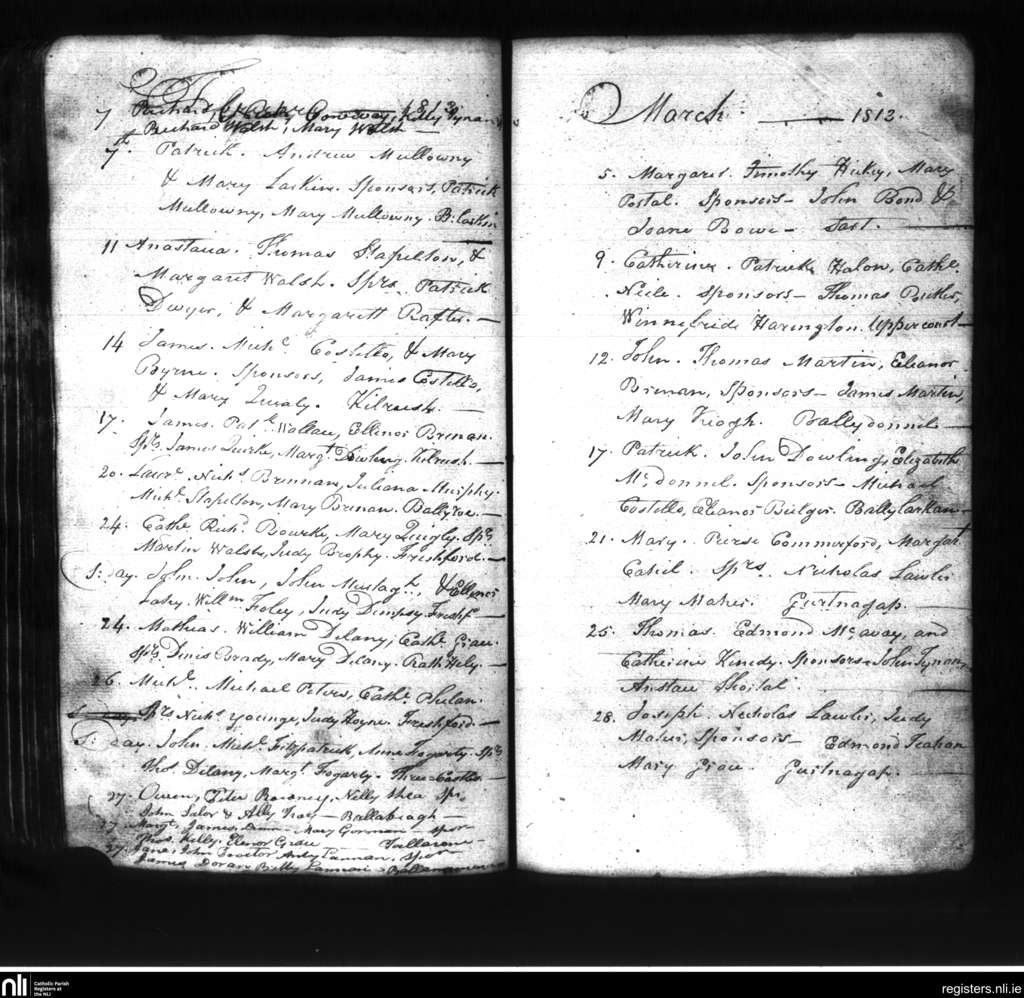 7 Richard, Conway, Kitty Tynan
Richard Walsh, Mary Walsh —
7th Patrick. Andrew Mullowny
& Mary Larkin. Sponsors, Patrick
Mullowny, Mary Mullowny. B:larkin
11 Anastasia. Thomas Stapelton, &
Margaret Walsh. Sprs. Patrick
Dwyer, & Margarett Rafter. —
14 James. Michl. Costello, & Mary
Byrne. Sponsors, James Costello,
& Mary Quealy. Kilrush. —
17. James. Patk. Wallace, Ellinor Brenan.
Sprs. James Quirke, Margt. Dowling. Kilrush. —
20. Lawre. Nichs. Brennan, Juliana Murphy.
Michl. Stapelton, Mary Brenan. Ballyroe. —
24. Cathe. Richd. Bourke, Mary Quigly. Sprs.
Martin Walsh, Judy Brophy. Freshford. —
S: day. John. John, John & Ellenor
Lahy. Willm. Foley, Judy Dempsy. Freshf. —
24. Mathias. William Delany, Cathe. Grace.
Sprs. Dinis Brady, Mary Delany. Rath Hely. —
26 Michl. Michael Peters, Cathe. Phelan.
Sprs. Nichs. Younge, Judy Hoyne. Freshford. —
S: day. John. Michl. Fitzpatrick, Anne Fogarty. Sprs.
Thos. Delany, Margt. Fogarty. Three Castles. —
27. Owen, Peter Nelly Shea Sprs.
John Lalor & Ally —
27 Margt. James Mary Gorman — Spor
Thos. Kelly. Elenor Grace — Tullaroan —
27. Jane, John Spor
James Doran Betty
March. — 1813.
5. Margaret. Timothy Hickey, Mary
Costal. Sponsors — John Bond &
Joane Bowe —
9. Catherine. Patrick Halon, Cathe.
Neile. Sponsors — Thomas Butler,
Winnefride Harington. Uppercourt —
12. John. Thomas Martin, Eleanor
Brenan, Sponsors — James Martin,
Mary Keogh. Ballydonnele —
17. Patrick. John Dowling, Elizabeth
Mc.donnel. Sponsors — Michael
Costello, Eleanor Bulger. Ballylarkan —
21. Mary. Pierse Commerford, Margat.
Cahil. Sprs. Nicholas Lawler
Mary Maher. Gurtnagap.
25. Thomas. Edmond Mc.avay, and
Catherine Kenedy. Sponsors — John Tynan,
Anstace Shortal.
28. Joseph. Nicholas Lawler, Judy
Maher, Sponsors — Edmond Teahan
Mary Grace. Gurtnagap.
nli
Catholic Parish
Registers at
the NLI
registers.nli.ie